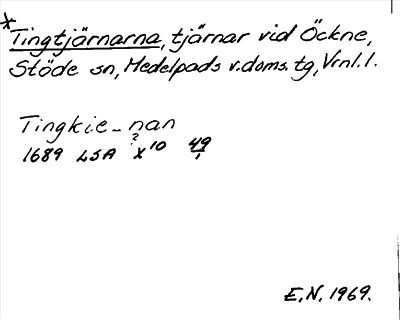 *Tingtjärnarna, tjärnar vid Öckne,
Stöde sn, Medelpads v.doms.tg, Vrnl.l.
Tingkie_nan
?
1689 LSA X10 49/1
E.N. 1969.